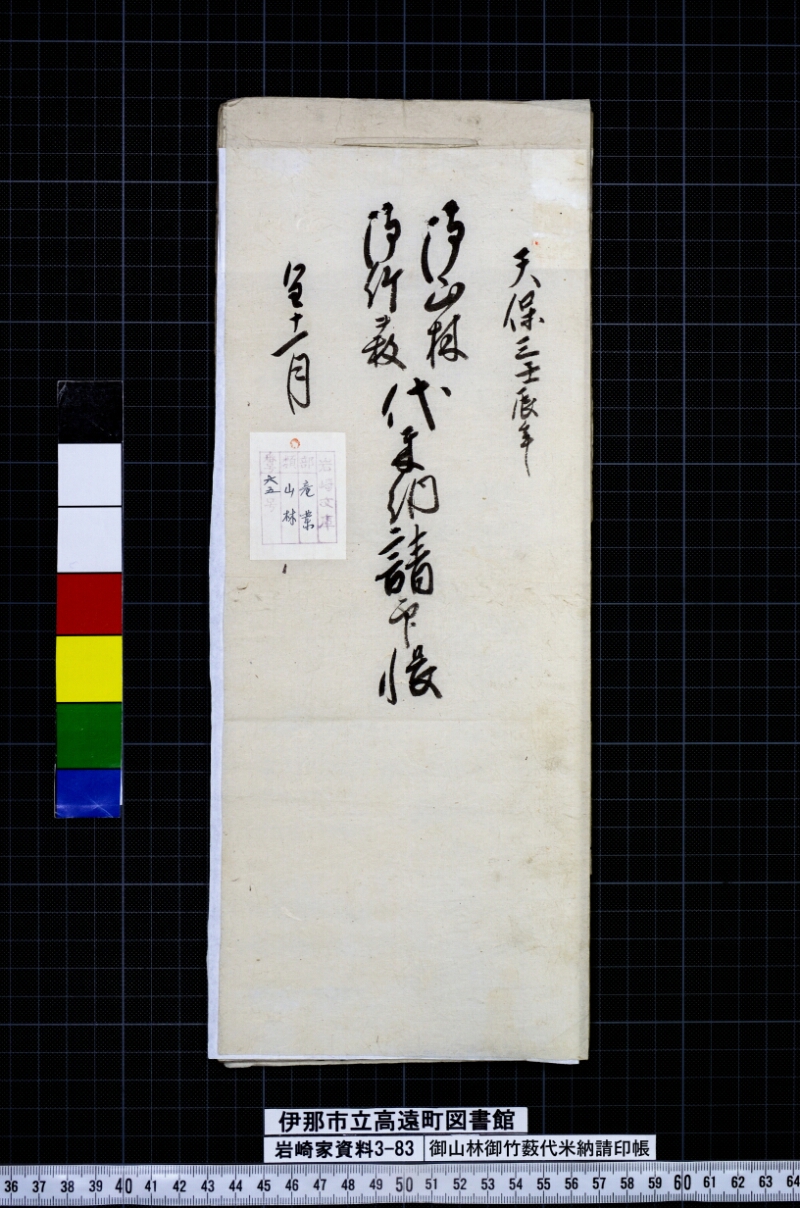 天保三壬辰年
御山林
御竹薮
代米納請印帳
十一月
岩崎文庫
部 産業
類 山林
番 六五号
伊那市立高遠町図書館
岩崎家資料3-83
御山林御竹薮代米納請印帳
36 37 38 39 40 41 42 43 44 45 46 47 48 49 50 51 52 53 54 55 56 57 58 59 60 61 62 63 64